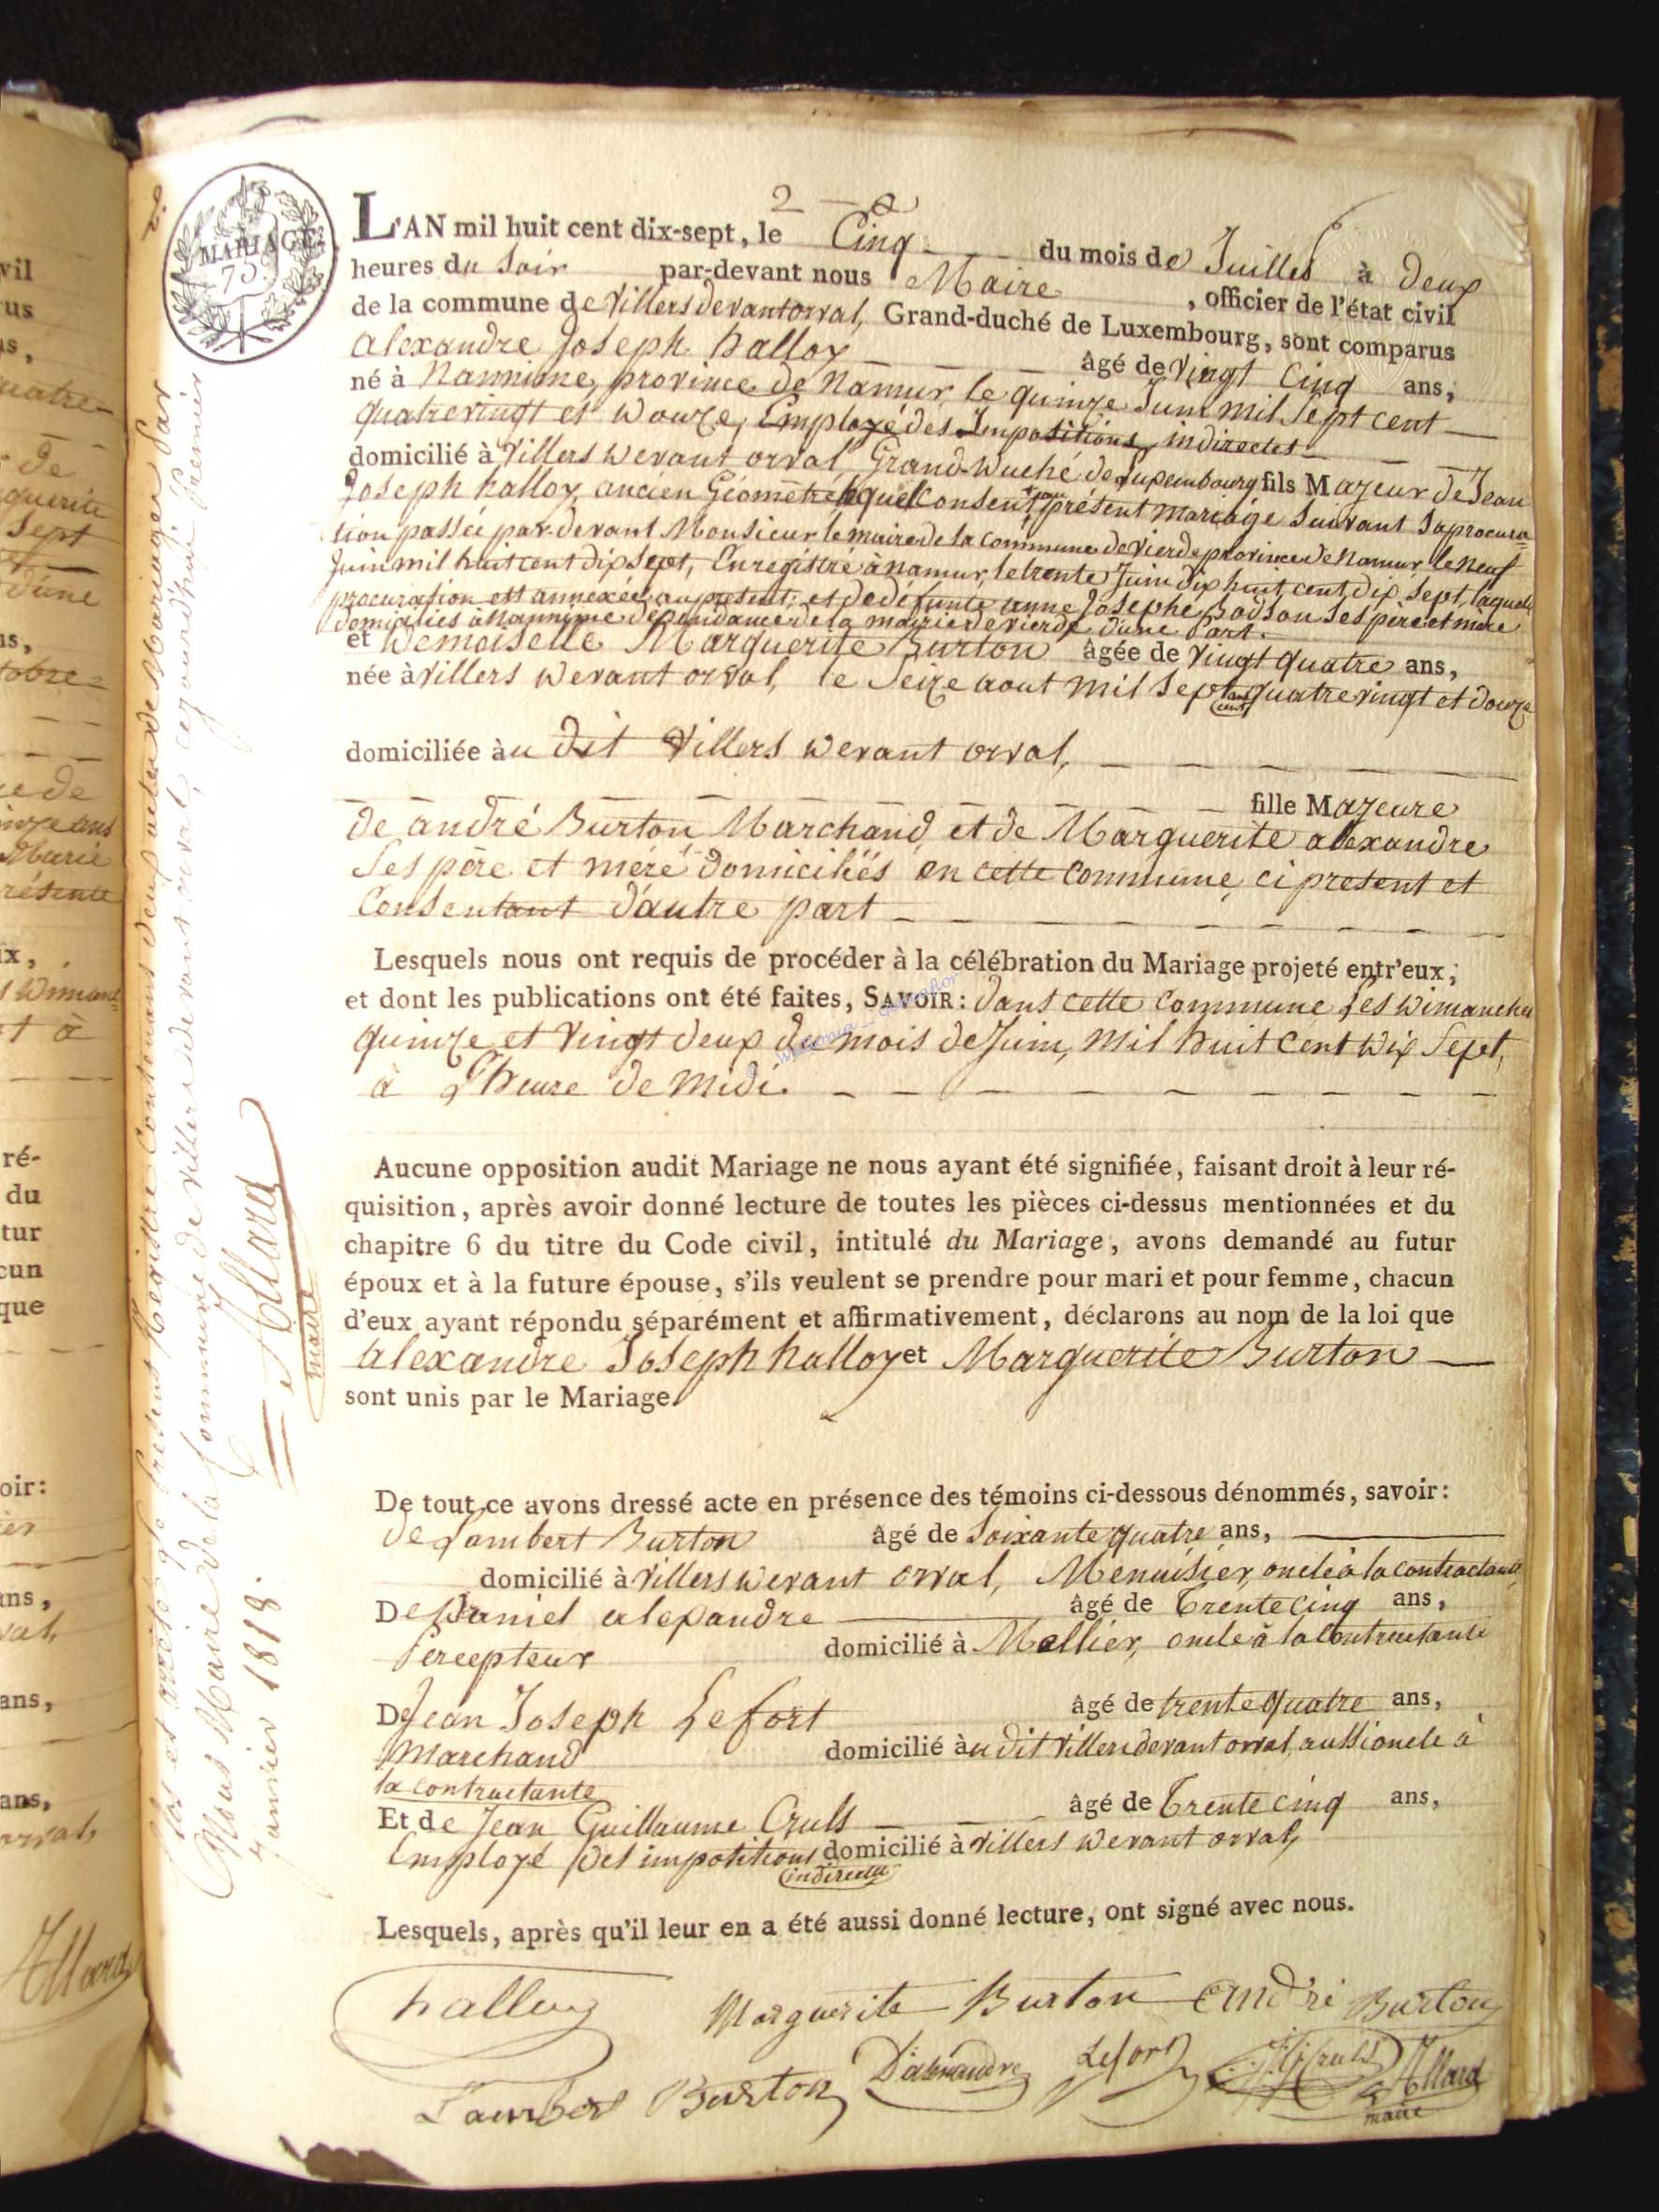 2
MARIAGE
L'AN mil huit cent dix-sept, le Cinq du mois de Juillet à deux
heures du Soir par-devant nous Maire, officier de l'état civil
de la commune de Villersdevantorval, Grand-duché de Luxembourg, sont comparus
alexandre Joseph halloy âgé de vingt cinq ans,
né à Nannime, province de Namur le quinze Juin mil sept cent
quatrevingt et Douze, Employé des Impositions indirectes
domicilié à Villers Devant orval Grand-Duché de Luxembourg fils Majeur de Jean
Joseph halloy, ancien Géomètre lequel consent au présent mariage suivant saprocura=
tion passée par-devant Monsieur le maire de la commune de Vierde province de Namur le neuf
Juin mil huit cent dix sept, Enregistré à namur, le trente Juin dix huit cent dix sept, laquelle
procuration est annexée au present; et de defunte anne Josephe Bodson Ses père et mere
domiciliés à Nannime dépendance de la mairie de vierde d'une Part.
et Demoiselle Marguerite Burton âgée de vingt quatre ans,
née à Villers Devant orval, le Seize aout mil sept cent quatrevingt et douze
domiciliée au dit Villers Devant orval,
fille Majeure
de andré Burton, Marchand, et de Marguerite alexandre
Ses père et mére domiciliés en cette commune, ci present et
Consentant d'autre part
Lesquels nous ont requis de procéder à la célébration du Mariage projeté entr'eux,
et dont les publications ont été faites, SAVOIR: dans cette commune Les Dimanches
quinze et vingt deux du mois de Juin, mil huit cent Dix Sept,
à L'heure de midi.
Aucune opposition audit Mariage ne nous ayant été signifiée, faisant droit à leur ré-
quisition, après avoir donné lecture de toutes les pièces ci-dessus mentionnées et du
chapitre 6 du titre du Code civil, intitulé du Mariage, avons demandé au futur
époux et à la future épouse, s'ils veulent se prendre pour mari et pour femme, chacun
d'eux ayant répondu séparément et affirmativement, déclarons au nom de la loi que
alexandre Joseph halloy et Marguerite Burton
sont unis par le Mariage.
De tout ce avons dressé acte en présence des témoins ci-dessous dénommés, savoir:
de Lambert Burton âgé de Soixante quatre ans,
domicilié à Villers Devant orval, Menuisier, oncle à la contractante
De Daniel alexandre âgé de Trente cinq ans,
Percepteur domicilié à Mellier, oncle à la contractante
De Jean Joseph Lefort âgé de trente quatre ans,
Marchand domicilié au dit Villersdevantorval, aussi oncle à
la contractante
Et de Jean Guillaume Cruls âgé de Trente cinq ans,
Employé des impositions indirectes domicilié à Villers Devant orval,
Lesquels, après qu'il leur en a été aussi donné lecture, ont signé avec nous.
halloy Marguerite Burton André Burton
Lambert Burton Dalexandre Lefort Cruls Allard
maire
Clos et arrêté le present Registre contenant deux actes de Mariages par
Nous Maire de la Commune de Villersdevantorval, cejourd'hui premier
Janvier 1818.
Allard
maire